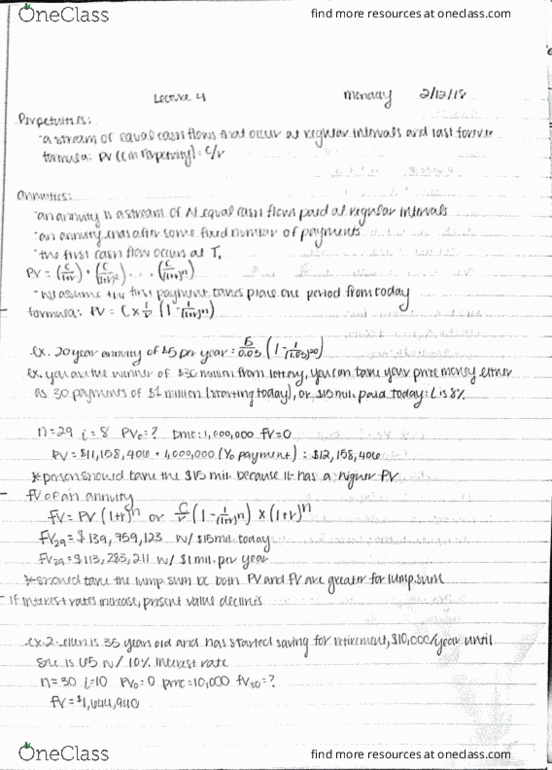 OneClass
find more resources at oneclass.com
Lecture 4 Monday 2/12/18
Perpetuities:
-a stream of equal cash flows that occur at regular intervals and last forever
formula: PV (C in Perpetuity) = C/r
Annuities:
-an annuity is a stream of N equal cash flows paid at regular intervals
-an annuity ends after some fixed number of payments
-the first cash flow occurs at T₁
PV = (C/1+r) + (C/(1+r)²) . . . (C/(1+r)ⁿ)
-we assume the first payment takes place one period from today
formula: PV = C x 1/r (1 - 1/(1+r)ⁿ)
ex. 20 year annuity of $5 per year = 5/0.05 (1 - 1/(1.05)²⁰)
ex. you are the winner of $30 million from lottery, you can take your prize money either
as 30 payments of $1 million (starting today), or $15 mil. paid today: i is 8%
n=29 i=8 PV₀=? pmt: 1,000,000 FV=0
PV = $11,158,406 + 1,000,000 (Y₀ payment) = $12,158,406
*person should take the $15 mil. because it has a higher PV
- FV of an annuity
FV = PV (1+r)ⁿ or C/r (1 - 1/(1+r)ⁿ) x (1+r)ⁿ
FV₂₉ = $139,759,123 w/ $15 mil. today
FV₂₉ = $113,283,211 w/ $1 mil. per year
*should take the lump sum bc both PV and FV are greater for lump sum
- If interest rates increase, present value declines
ex. 2. ellen is 35 years old and has started saving for retirement, $10,000/year until
she is 65 w/ 10% interest rate
n=30 i=10 PV₀=0 pmt=10,000 FV₃₀=?
FV = $1,644,940
OneClass
find more resources at oneclass.com